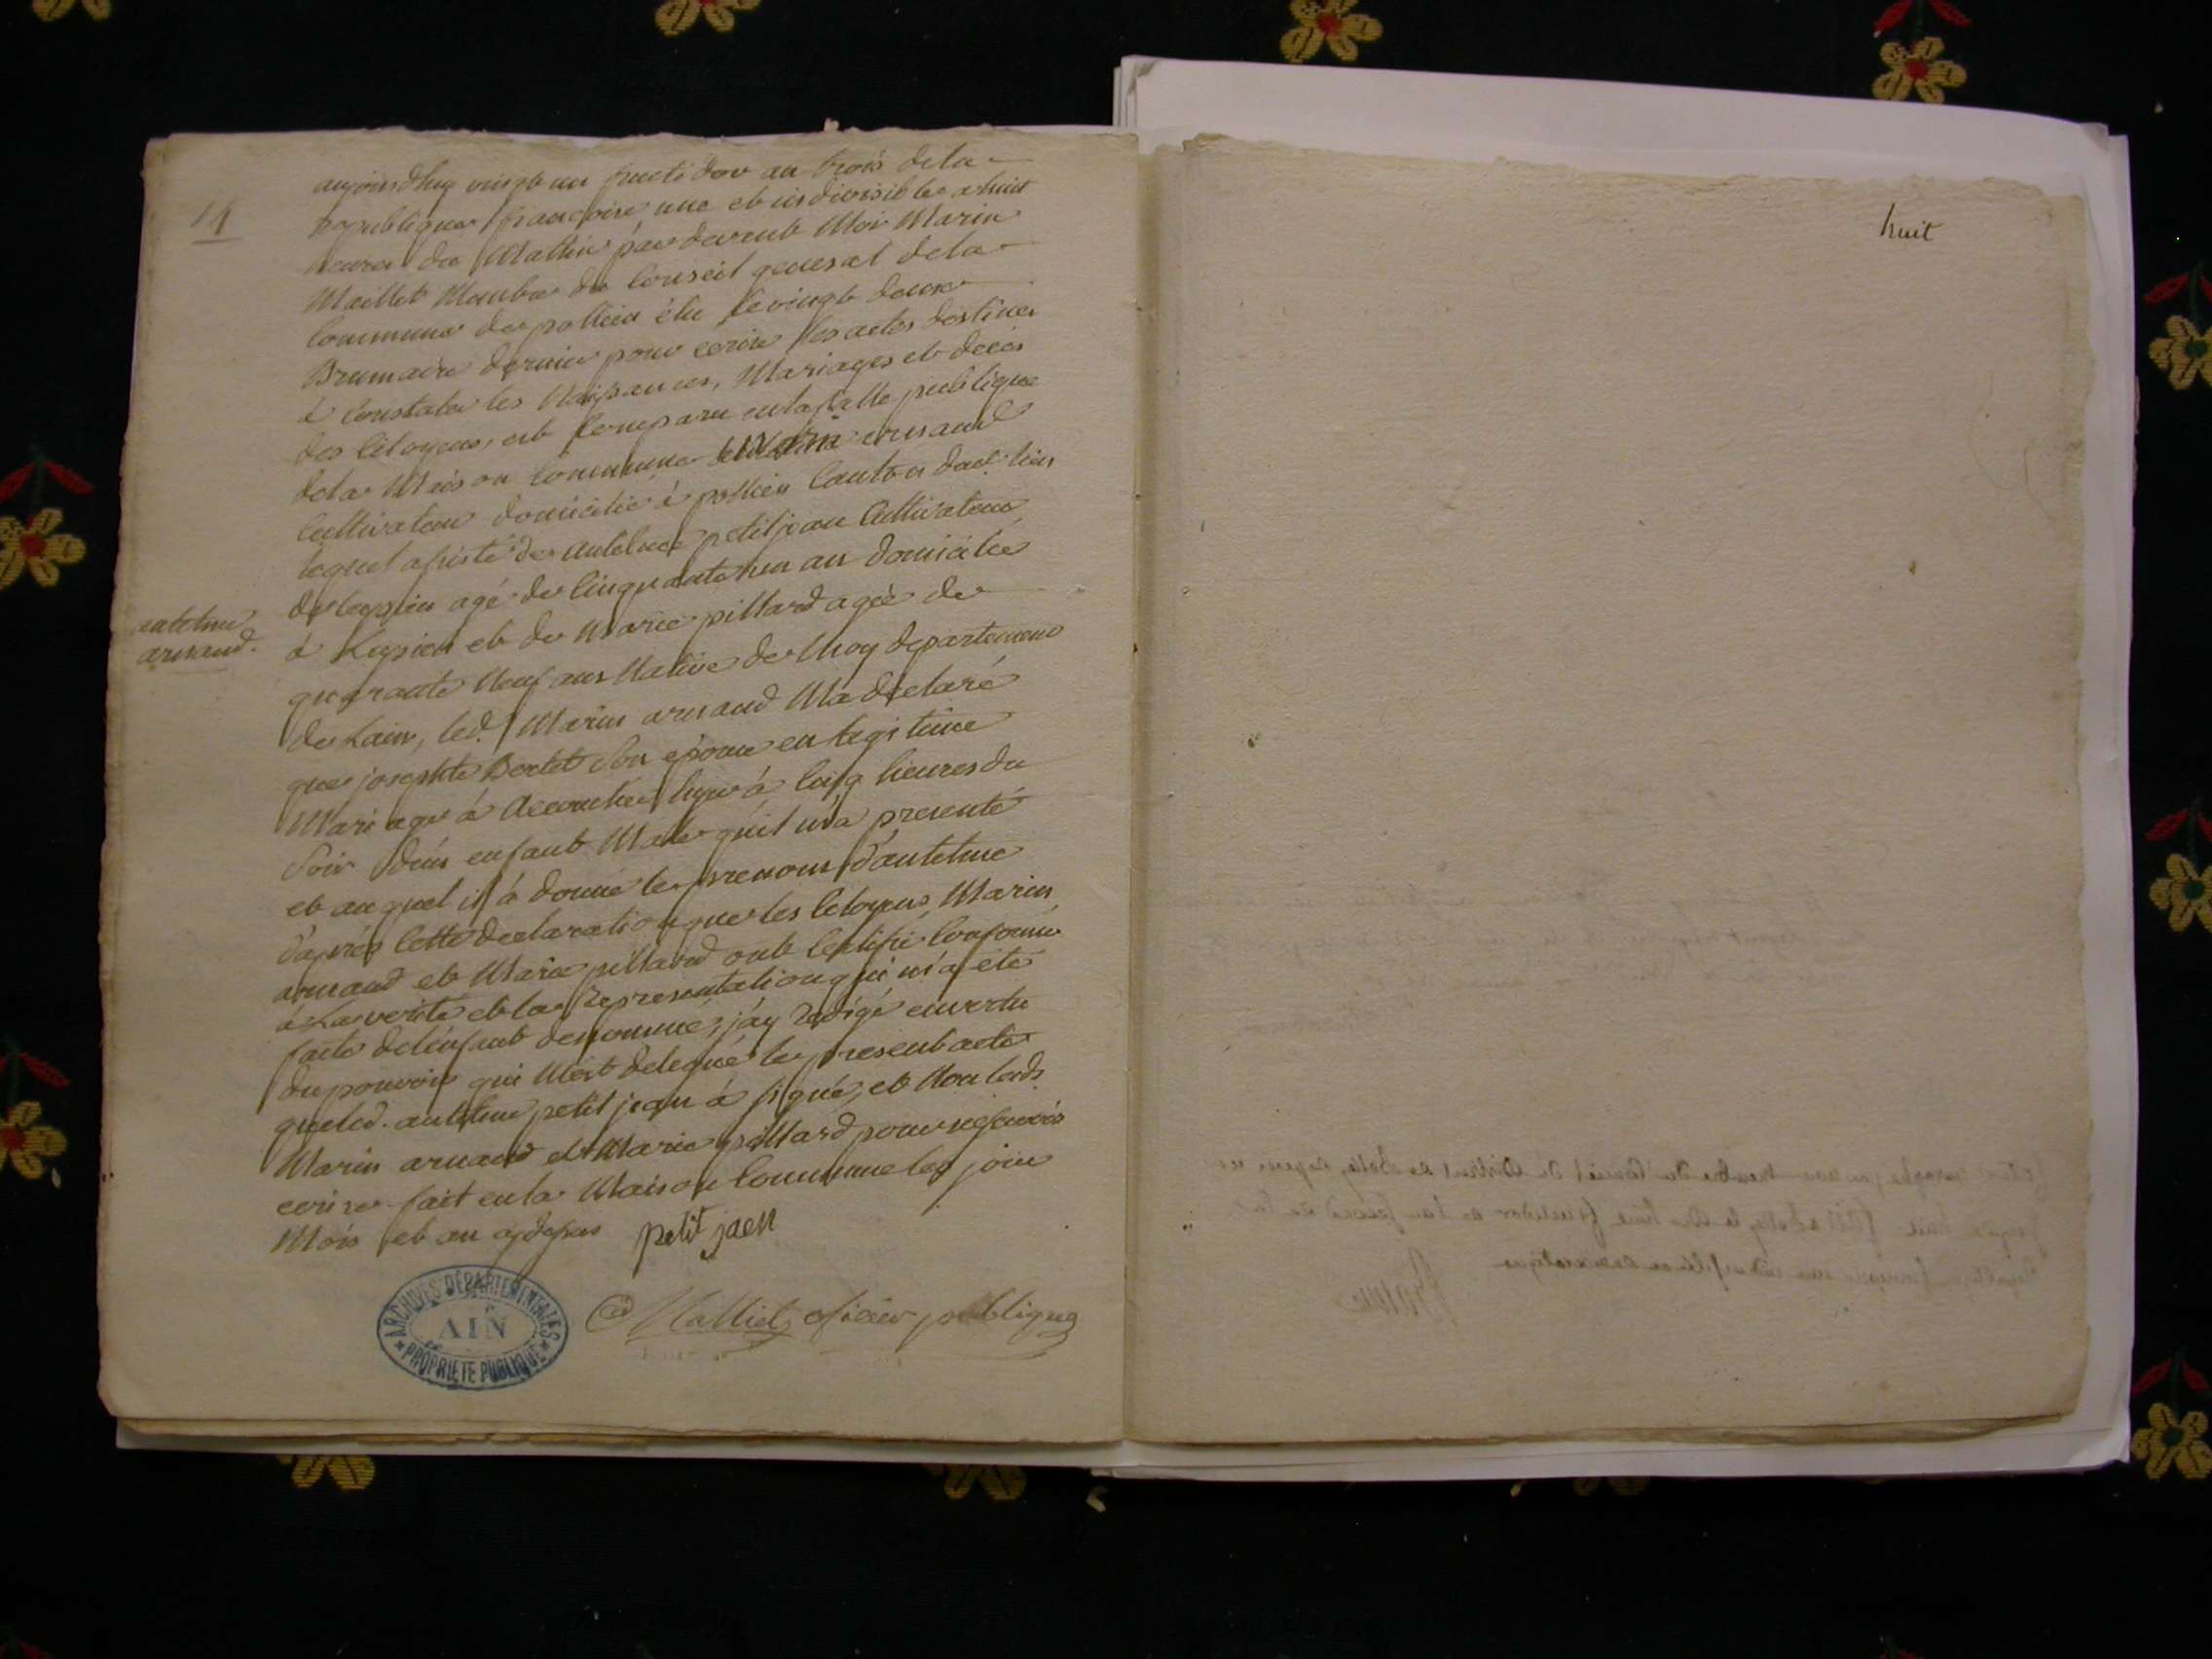 14
aujourdhuy vingt un fructidor an trois dela
republique francoise une et indivisible a huit
heures du Mattin par devant Moi Marin
Maillet Membre du Conseil general dela
Commune de pollieu élu le vingt deux
Brumaire dernier pour ecrire les actes destinés
à Constater les Naissances, Mariages et décés
des Citoyens, est Comparu en la salle publique
dela Maison Commune Marin arnaud
Cultivateur domicilié à pollieu Canton
lequel assisté de antelme petitjean Cultivateur
de agé de Cinquante un an domicilié
à et de Marie pillard agée de
quarante Neuf ans Native de departement
de Lain, led. Marin arnaud Ma declaré
que josephte Bertet son epouse en legitime
Mariage à accouchée hyer à Cinq heures du
Soir d'un enfant Male qu'il m'a presenté
et au quel il à donné le prenom d'antelme
d'aprés Cette declaration que les Citoyens Marin
arnaud et Marie pillard ont Certifié Conforme
à La verité et la representation qui m'a été
faite de l'enfant denommé, j'ay redigé en vertu
du pouvoir qui M'est delegué le present acte
que led. antelme petit jean à signé, et Non lesds.
Marin arnaud et Marie pillard pour ne savoir
ecrire fait en la Maison Commune les jour
Mois et an cydessus petit jaen
Malliet oficier publique
antelme
arnaud.
ARCHIVES DÉPARTEMENTALES
AIN
PROPRIÉTÉ PUBLIQUE
huit